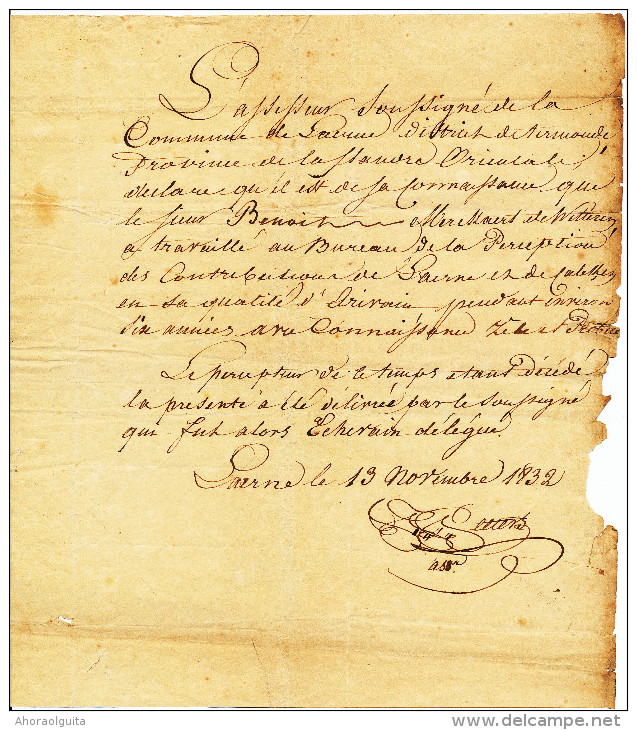 L'assesseur Soussigné de la
Commune de Laerne district de Termonde
Province de la flandre Orientale,
declare qu'il est de sa Connaissance que
le sieur Benoit de Wetteren
a travaillé au Bureau de la Perception
des Contributions de Laerne et de Calcken
en sa qualité d'Ecrivain pendant environ
dix années avec Connaissance Zèle et
Le percepteur de ce temps etant Décédé
la presente a été délivrée par le Soussigné
qui fut alors Echevain délégué.
Laerne le 13 Novembre 1832
assr.
Ahoraolguita
delcampe.net